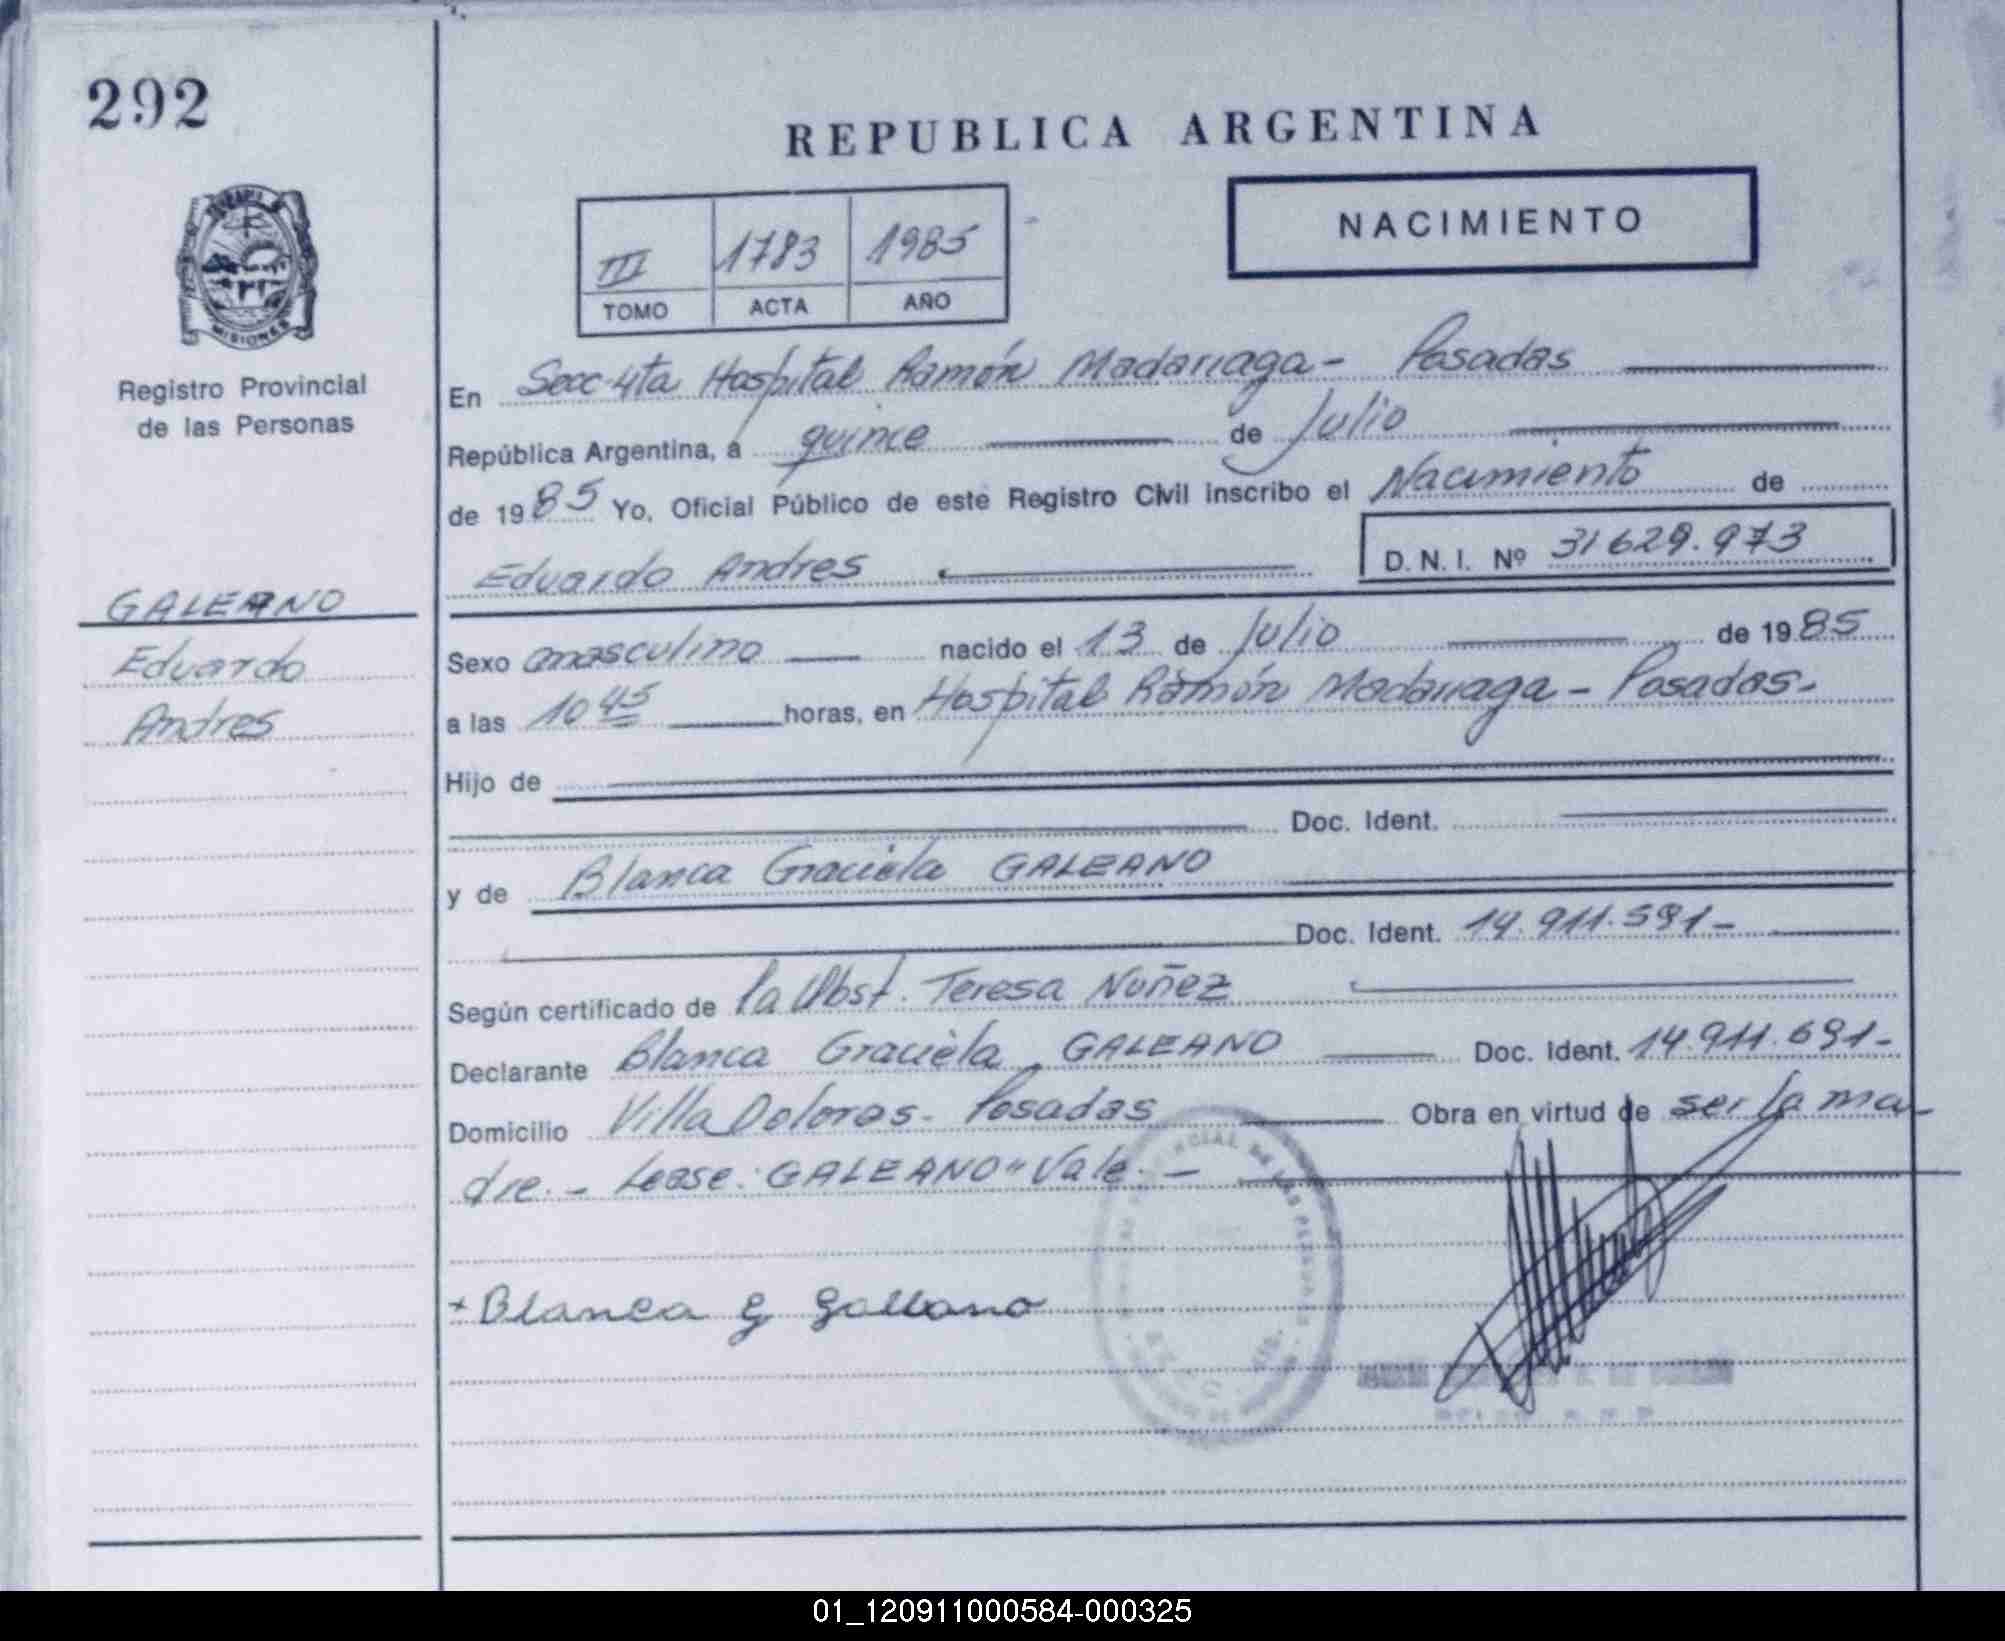 292
REPUBLICA ARGENTINA
NACIMIENTO
III 1783 1985
TOMO ACTA AÑO
MISIONES
Registro Provincial
de las Personas
En Secc 4ta Hospital Ramón Madariaga - Posadas
República Argentina, a quince de Julio
de 1985 Yo, Oficial Público de este Registro Civil inscribo el Nacimiento de
Eduardo Andres D. N. I. Nº 31629.973
GALEANO
Eduardo
Andres
Sexo masculino nacido el 13 de Julio de 1985
a las 10 45 horas, en Hospital Ramón Madariaga - Posadas-
Hijo de
Doc. Ident.
y de Blanca Graciela GALEANO
Doc. Ident. 14.911.591-
Según certificado de la Obst. Teresa Nuñez
Declarante Blanca Graciela GALEANO Doc. Ident. 14.911.691-
Domicilio Villa Dolores - Posadas Obra en virtud de ser la ma-
dre. - Lease: GALEANO" Vale. -
+ Blanca G Galeano
01_120911000584-000325